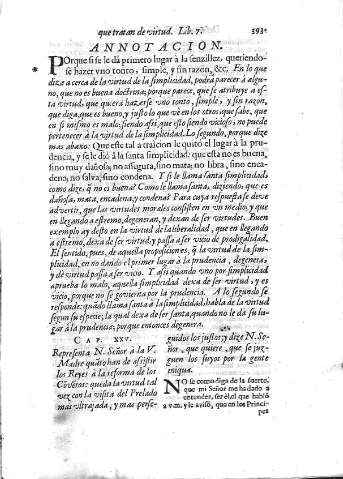 que tratan de virtud. Lib. 7. 393.
ANNOTACION.
Porque si se le dà primero lugar à la senzillez, queriendo-
* se hazer vno tonto, simple, y sin razon, &c. En lo que
dize a cerca de la virtud de la simplicidad, podrà parecer à algu-
no, que no es buena doctrina; porque parece, que se atribuye a es-
ta virtud, que quiera hazerse vno tonto, simple, y sin razon,
que diga, que es bueno, y justo lo que vè en los otros que sabe, que
en si mismo es malo; siendo assi, que esto siendo vicioso, no puede
pertenecer à la virtud de la simplicidad. Lo segundo, porque dize
mas abaxo: Que este tal a traicion le quitò el lugar à la pru-
dencia, y se le diò à la santa simplicidad: que esta no es buena,
sino muy dañosa; no assegura, sino mata; no libra, sino enca-
dena; no salva, sino condena. Y si le llama santa simplicidad,
como dize, q̃ no es buena? Como le llama santa, diziendo, que es
dañosa, mata, encadena, y condena? Para cuya respuesta se deve
advertir, que las virtudes morales consisten en vn medio, y que
en llegando a estremo, degeneran, y dexan de ser virtudes. Buen
exemplo ay desto en la virtud de la liberalidad, que en llegando
a estremo, dexa de ser virtud, y passa a ser vicio de prodigalidad.
El sentido, pues, de aquella proposiciones, q̃ la virtud de la sim-
plicidad, en no dando el primer lugar à la prudencia, degenera,
y de virtud passa a ser vicio. Y assi quando vno por simplicidad
aprueba lo malo, aquella simplicidad dexa de ser virtud, y es
vicio, porque no se govierna por la prudencia. A lo segundo se
responde: quādo llama santa à la simplicidad, habla de la virtud
segun su especie; la qual dexa de ser santa, quando no le dà su lu-
gar à la prudencia, porque entonces degenera.
CAP. XXV.
Representa N. Señor à la V.
Madre quāto han de assistir
los Reyes à la reforma de los
Cōvētos: queda la virtud tal
vez con la visita del Prelado
mas vltrajada, y mas perse-
guidos los justos; y dize N. Se-
ñor, que quiere, que se juz-
guen los suyos por la gente
iniqua.
No sè como diga de la suerte,
que mi Señor me ha dado a
entender, ser èl, el que hablò
a v.m. y le avisò, que en los Princi-
pes